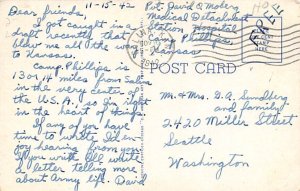 11-15-42
Dear friends,
I got caught in a
draft recently that
blew me all the way
to Kansas.
Camp Phillips is
13 or 14 miles from Salina
in the very center of the
U.S.A. so I'm right
in the heart of things.
If any of you have
time to write I enjoy
hearing from you.
If you write I'll write
a letter telling more
about Army life. David
Pvt. David A. Moberg
Medical Detachment
Station Hospital
Camp Phillips,
Kansas
FREE
POST CARD
Mr. & Mrs. G. A. Sundberg
and family
2420 Miller Street
Seattle
Washington